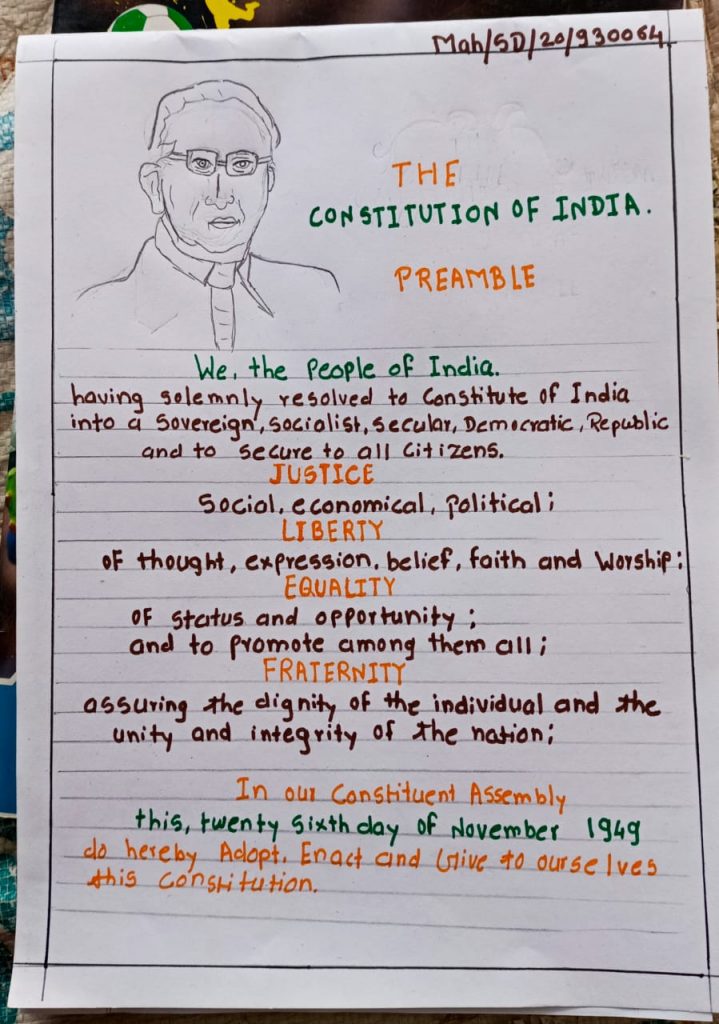 Mah/SD/20/930064
THE
CONSTITUTION OF INDIA.
PREAMBLE
We, the People of India.
having solemnly resolved to Constitute of India
into a Sovereign, socialist, secular, Democratic, Republic
and to secure to all Citizens.
JUSTICE
Social, economical, political;
LIBERTY
of thought, expression, belief, faith and Worship;
EQUALITY
of status and opportunity;
and to promote among them all;
FRATERNITY
assuring the dignity of the individual and the
unity and integrity of the nation;
In our Constituent Assembly
this, twenty sixth day of November 1949
do hereby Adopt, Enact and Give to ourselves
this Constitution.